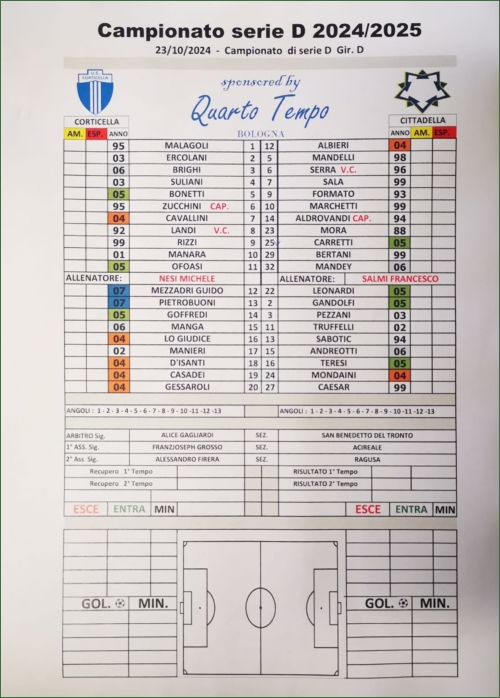 Campionato serie D 2024/2025
23/10/2024 - Campionato di serie D Gir. D
U.S. CORTICELLA
sponsored by
Quarto Tempo
BOLOGNA
CORTICELLA CITTADELLA
AM. ESP. ANNO ANNO AM. ESP.
95 MALAGOLI 1 12 ALBIERI 04
03 ERCOLANI 2 5 MANDELLI 98
06 BRIGHI 3 6 SERRA V.C. 96
03 SULIANI 4 7 SALA 99
05 BONETTI 5 9 FORMATO 93
95 ZUCCHINI CAP. 6 10 MARCHETTI 99
04 CAVALLINI 7 14 ALDROVANDI CAP. 94
92 LANDI V.C. 8 23 MORA 88
99 RIZZI 9 25 CARRETTI 05
01 MANARA 10 29 BERTANI 99
05 OFOASI 11 32 MANDEY 06
ALLENATORE: NESI MICHELE ALLENATORE: SALMI FRANCESCO
07 MEZZADRI GUIDO 12 22 LEONARDI 05
07 PIETROBUONI 13 2 GANDOLFI 05
05 GOFFREDI 14 3 PEZZANI 03
06 MANGA 15 11 TRUFFELLI 02
04 LO GIUDICE 16 13 SABOTIC 94
02 MANIERI 17 15 ANDREOTTI 06
04 D'ISANTI 18 16 TERESI 05
04 CASADEI 19 24 MONDAINI 04
04 GESSAROLI 20 27 CAESAR 99
ANGOLI : 1 - 2 - 3 - 4 - 5 - 6 - 7 - 8 - 9 - 10 - 11 - 12 - 13 ANGOLI : 1 - 2 - 3 - 4 - 5 - 6 - 7 - 8 - 9 - 10 - 11 - 12 - 13
ARBITRO Sig. ALICE GAGLIARDI SEZ. SAN BENEDETTO DEL TRONTO
1° ASS. Sig. FRANZJOSEPH GROSSO SEZ. ACIREALE
2° Ass Sig. ALESSANDRO FIRERA SEZ. RAGUSA
Recupero 1° Tempo RISULTATO 1° Tempo
Recupero 2° Tempo RISULTATO 2° Tempo
ESCE ENTRA MIN ESCE ENTRA MIN
GOL. MIN. GOL. MIN.